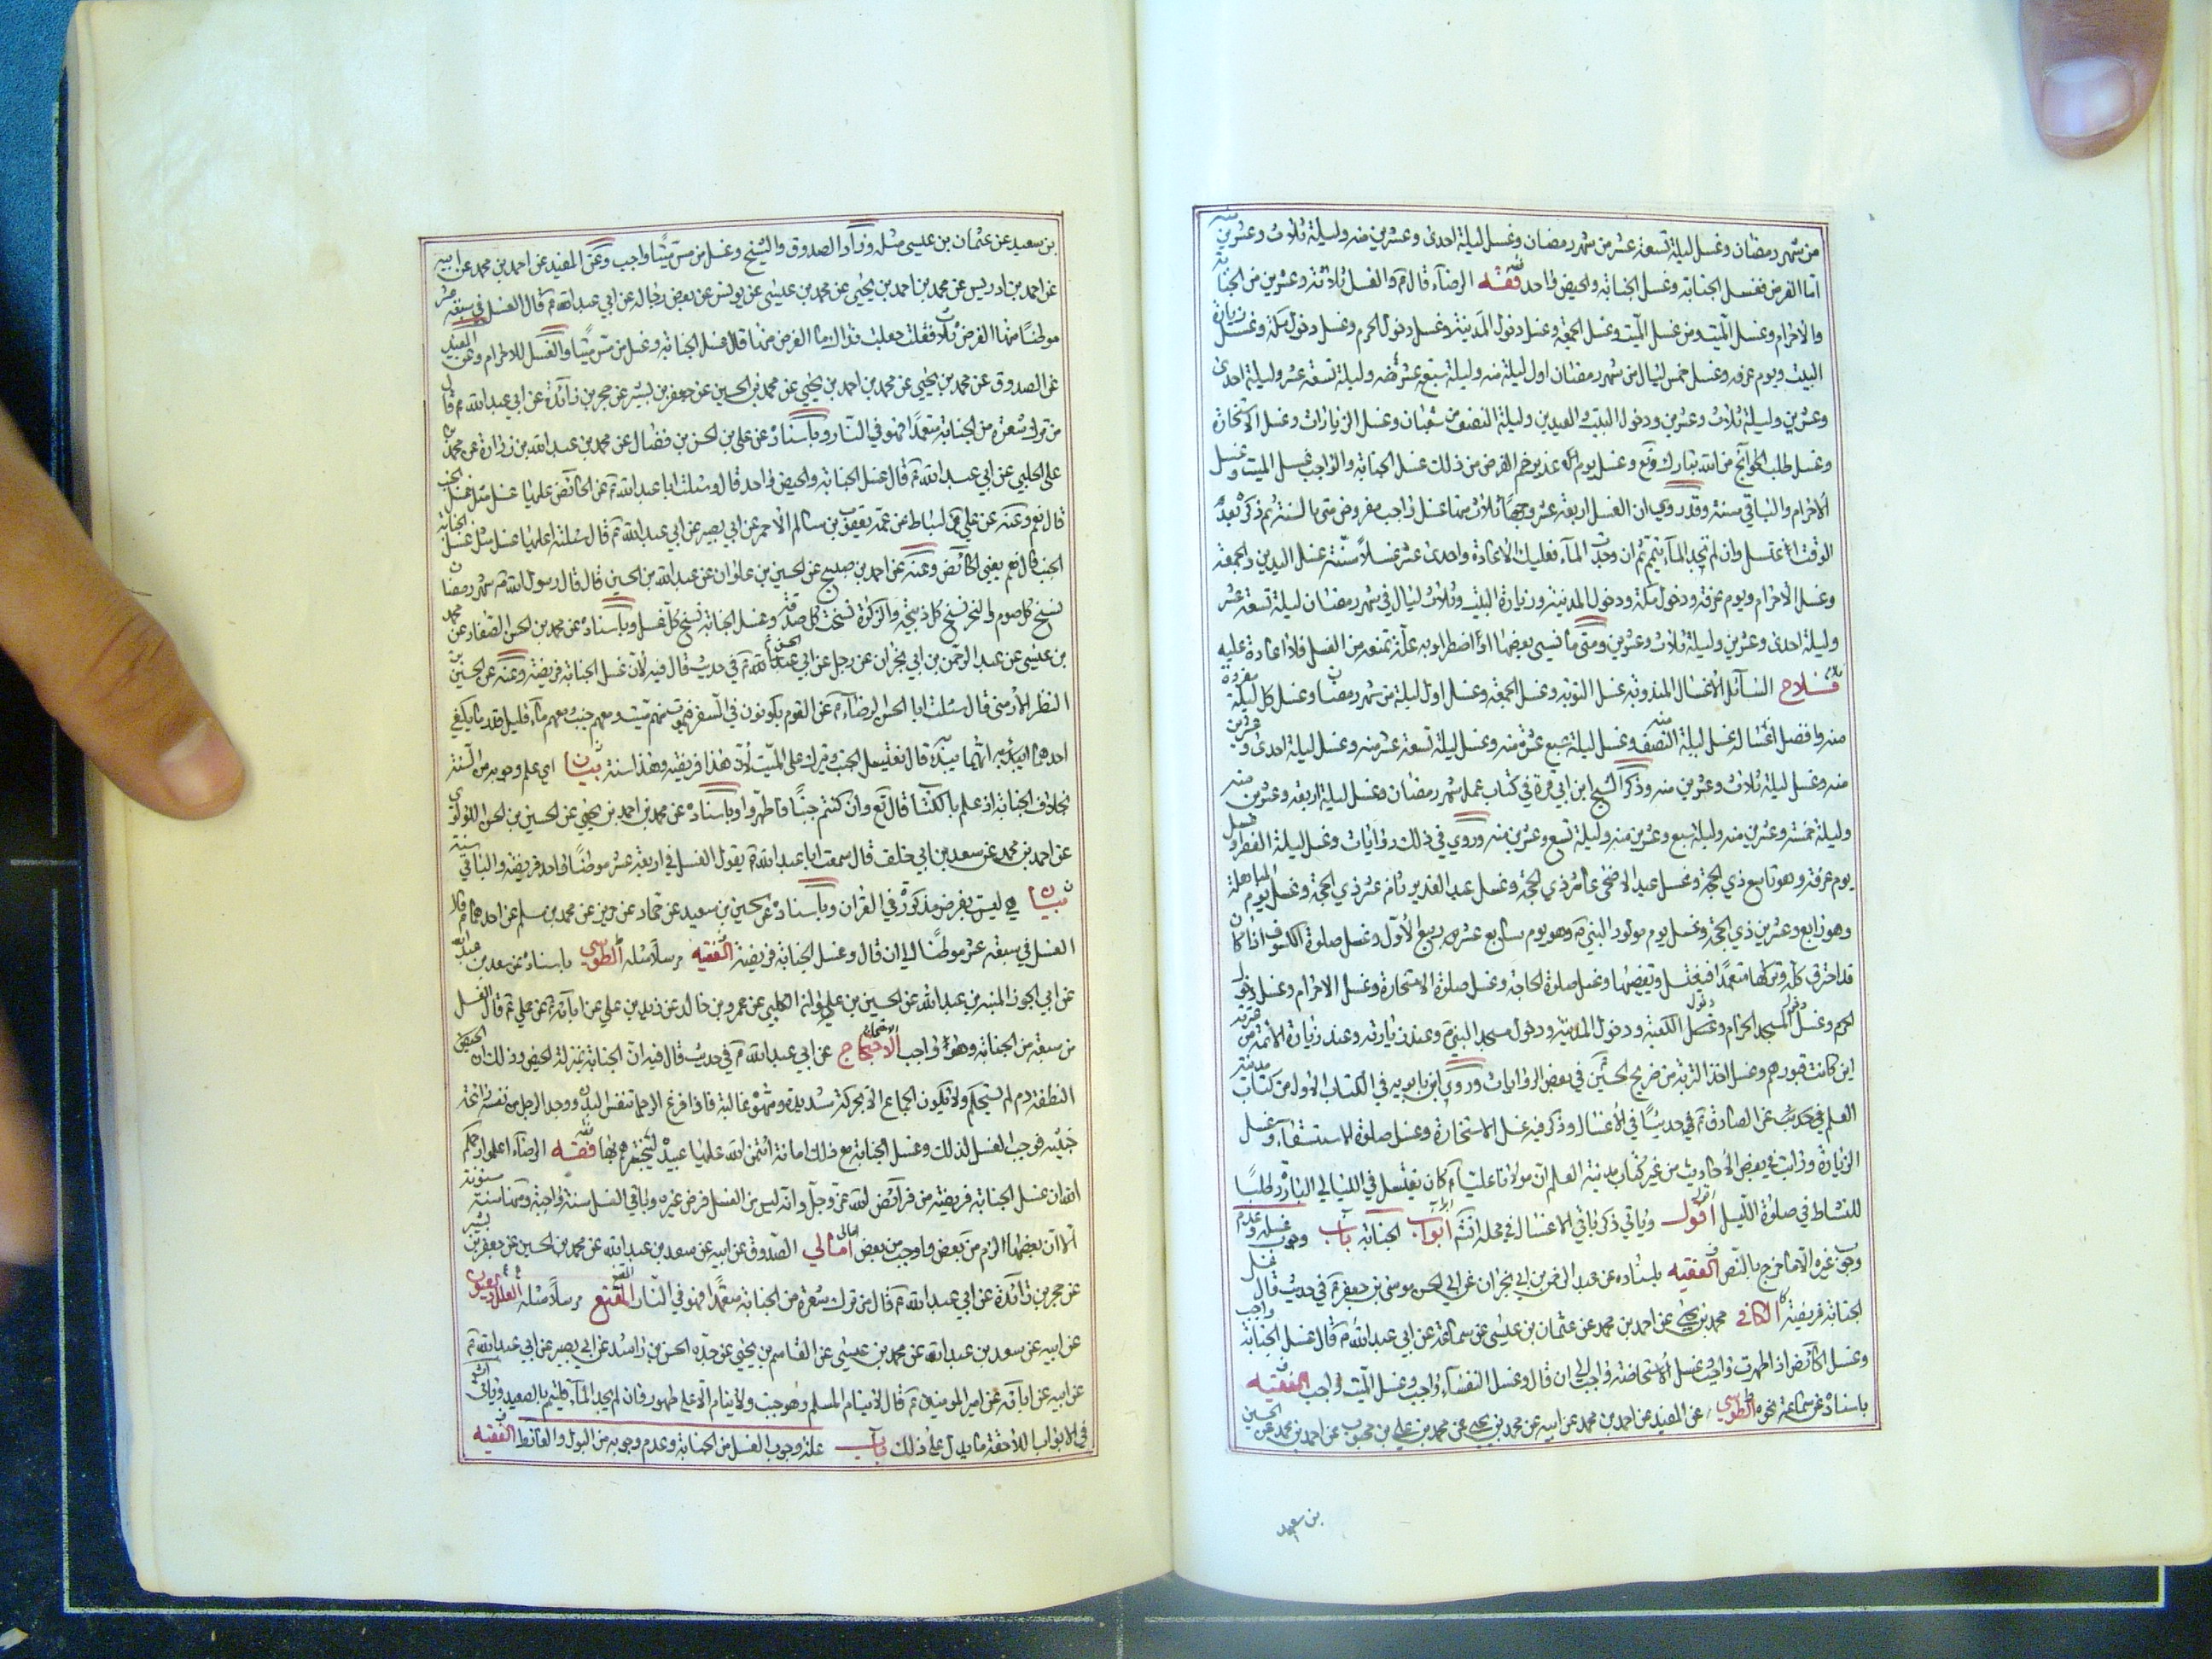 من شهر رمضان وغسل ليلة تسعة عشر من شهر رمضان وغسل ليلة احدى وعشرين منه وليلة ثلاث وعشرين
اما الفرض فغسل الجنابة وغسل الجنابة والحيض واحد فقه الرضا قال والغسل ثلاثة وعشرين من الجنابة
والاحرام وغسل الميت ومن غسل الميت وغسل الجمعة وغسل دخول المدينة وغسل دخول الحرم وغسل دخول مكة وغسل زيارة
البيت ويوم عرفه وغسل خمس ليال من شهر رمضان اول ليلة منه وليلة سبعة عشر منه وليلة تسعة عشر وليلة احدى
وعشرين وليلة ثلاث وعشرين ودخول البيت والعيدين وليلة النصف من شعبان وغسل الزيارات وغسل الاستخارة
وغسل طلب الحوائج من الله تبارك وتع وغسل يوم غدير خم الفرض من ذلك غسل الجنابة والواجب غسل الميت وغسل
الاحرام والباقي سنة وقد روي ان الغسل اربعة عشر وجها ثلاث منها غسل واجب مفروض متى ما نسيه ثم ذكره بعد
الوقت اغتسل وان لم تجد الماء تيمم ثم ان وجدت الماء فعليك الاعادة واحدى عشر غسلا سنة غسل العيدين والجمعة
وغسل الاحرام ويوم عرفة ودخول مكة ودخول المدينة وزيارة البيت وثلاث ليال في شهر رمضان ليلة تسعة عشر
وليلة احدى وعشرين وليلة ثلاث وعشرين ومتى ما نسي بعضها او اضطر او به علة تمنعه من الغسل فلا اعادة عليه
فلاح السائل الاغسال المندوبة غسل التوبة وغسل الجمعة وغسل اول ليلة من شهر رمضان وغسل كل ليلة مفردة
منه وافضل اغساله غسل ليلة النصف منه وغسل ليلة سبع عشرة منه وغسل ليلة تسعة عشر منه وغسل ليلة احدى وعشرين
منه وغسل ليلة ثلاث وعشرين منه وذكر الشيخ ابن ابي قرة في كتاب عمل شهر رمضان وغسل ليلة اربعة وعشرين منه
وليلة خمسة وعشرين منه وليلة سبع وعشرين منه وليلة تسع وعشرين منه وروي في ذلك روايات وغسل ليلة الفطر وغسل
يوم عرفة وهو تاسع ذي الحجة وغسل عيد الاضحى عاشر ذي الحجة وغسل عيد الغدير ثامن عشر ذي الحجة وغسل يوم المباهلة
وهو رابع وعشرين ذي الحجة وغسل يوم مولود النبي ص وهو يوم سابع عشر ربيع الاول وغسل صلوة الكسوف اذا كان
قد احترق كله وتركها متعمدا فيغتسل ويقضيها وغسل صلوة الحاجة وغسل صلوة الاستخارة وغسل الاحرام وغسل دخول
الحرم وغسل دخول المسجد الحرام وغسل دخول الكعبة ودخول المدينة ودخول مسجد النبي ص وعند زيارته وعند زيارة الائمة من عترته
اين كانت قبورهم وغسل اخذ التربة من ضريح الحسين في بعض الروايات وروى ابن بابويه في الكتاب الاول من كتاب مدينة
العلم في حديث عن الصادق ع في حديثا في الاغسال وذكر فيه غسل الاستخارة وغسل صلوة الاستسقاء وغسل
الزيارة ورايت في بعض الاحاديث من غير كتاب مدينة العلم ان مولانا عليا ع كان يغتسل في الليالي الباردة طلبا
للنشاط في صلوة الليل اقول وياتي ذكر باقي الاغسال في محله انشاء ابواب الجنابة باب وجوب غسله وعدم
وجوب غيره الا ما خرج بالنص الفقيه باسناده عن عبد الرحمن بن ابي نجران عن ابي الحسن موسى بن جعفر ع في حديث قال غسل
الجنابة فريضة الكافي محمد بن يحيى عن احمد بن محمد عن عثمان بن عيسى عن سماعة عن ابي عبد الله ع قال غسل الجنابة واجب
وغسل الحائض اذا طهرت واجب وغسل الاستحاضة واجب الى ان قال وغسل النفساء واجب وغسل الميت واجب الفقيه
باسناده عن سماعة نحوه الطوسي عن المفيد عن احمد بن محمد عن ابيه عن محمد بن يحيى عن محمد بن علي بن محبوب عن احمد بن محمد عن الحسين
بن سعيد
بن سعيد عن عثمان بن عيسى مثله وزاد الصدوق والشيخ وغسل من مس ميتا واجب وعن المفيد عن احمد بن محمد عن ابيه
عن احمد بن ادريس عن محمد بن احمد بن يحيى عن محمد بن عيسى عن يونس عن بعض رجاله عن ابي عبد الله ع قال الغسل في سبعة عشر
موطنا منها الفرض ثلاث فقلت جعلت فداك ما الفرض منها قال غسل الجنابة وغسل من مس ميتا والغسل للاحرام وعن المفيد
عن الصدوق عن محمد بن يحيى عن محمد بن احمد بن يحيى عن محمد بن الحسين عن جعفر بن بشير عن حجر بن زائدة عن ابي عبد الله ع قال
من ترك شعرة من الجنابة متعمدا فهو في النار وباسناده عن علي بن الحسن بن فضال عن محمد بن عبد الله بن زرارة عن محمد بن
علي الحلبي عن ابي عبد الله ع قال غسل الجنابة والحيض واحد قال وسئلت ابا عبد الله ع عن الحائض عليها غسل مثل غسل الجنب
قال نعم وعنه عن علي بن اسباط عن عمه يعقوب بن سالم الاحمر عن ابي بصير عن ابي عبد الله ع قال سئلته اعليها غسل مثل غسل الجنابة
الجنب قال نعم يعني الحائض وعنه عن احمد بن صبيح عن الحسين بن علوان عن عبد الله بن الحسين قال قال رسول الله ص شهر رمضان
نسخ كل صوم والنحر نسخ كل ذبيحة والزكوة نسخت كل صدقة وغسل الجنابة نسخ كل غسل وباسناده عن محمد بن الحسن الصفار عن محمد
بن عيسى عن عبد الرحمن بن ابي نجران عن رجل عن ابي الحسن ع في حديث قال فيه لان غسل الجنابة فريضة وعنه عن الحسين بن
النظر الارمني قال سئلت ابا الحسن الرضا ع عن القوم يكونون في السفر فيموت منهم ميت ومعهم جنب ومعهم ماء قليل قدر ما يكفي
احدهما ايبدء به ايهما يبدء قال يغتسل الجنب ويترك الميت لان هذا فريضة وهذا سنة بيان اي علم وجوبه من السنة
بخلاف الجنابة اذ علم بالكتاب قال تع وان كنتم جنبا فاطهروا وباسناده عن محمد بن احمد بن يحيى عن الحسين بن الحسن اللؤلؤي
عن احمد بن محمد عن سعد بن ابي خلف قال سمعت ابا عبد الله ع يقول الغسل في اربعة عشر موطنا واحد فريضة والباقي سنة
بيان هي ليس بفرض مذكور في القران وباسناده عن الحسين بن سعيد عن حماد عن حريز عن محمد بن مسلم عن احدهما ع قال
الغسل في سبعة عشر موطنا الى ان قال وغسل الجنابة فريضة الفقيه مرسلا مثله الطوسي باسناده عن سعد بن عبد الله
عن ابي الجوزا المنبه بن عبد الله عن الحسين بن علوان الكلبي عن عمرو بن خالد عن زيد بن علي عن ابائه عن علي ع قال الغسل
من سبعة من الجنابة وهو واجب الاحتجاج عن ابي عبد الله ع في حديث قال فيه ان الجنابة بمنزلة الحيض وذلك ان
النطفة دم لم يستحكم ولا يكون الجماع الا بحركة شديدة وشهوة غالبة فاذا فرغ الرجل تنفس البدن ووجد الرجل من نفسه رائحة
خبيثة فوجب الغسل لذلك وغسل الجنابة مع ذلك امانة ائتمن الله عليها عبيده ليختبرهم بها فقه الرضا اعلموا رحمكم
الله ان غسل الجنابة فريضة من فرائض الله عز وجل وانه ليس من الغسل فرض غيره وباقي الغسل سنة واجبة ومنها سنة مسنونة
الا ان بعضها الزم من بعض واوجب من بعض امالي الصدوق عن ابيه عن سعد بن عبد الله عن محمد بن الحسين عن جعفر بن بشير
عن حجر بن زائدة عن ابي عبد الله ع قال من ترك شعرة من الجنابة متعمدا فهو في النار المقنع مرسلا مثله العلل
عن ابيه عن سعد بن عبد الله عن محمد بن عيسى عن القاسم بن يحيى عن جده الحسن بن راشد عن ابي بصير عن ابي عبد الله ع
عن ابيه عن ابائه عن امير المومنين ع قال لا ينام المسلم وهو جنب ولا ينام الا على طهور فان لم يجد الماء فليتيمم بالصعيد وياتي
في الابواب اللاحقة ما يدل على ذلك باب علة وجوب الغسل من الجنابة وعدم وجوبه من البول والغائط الفقيه